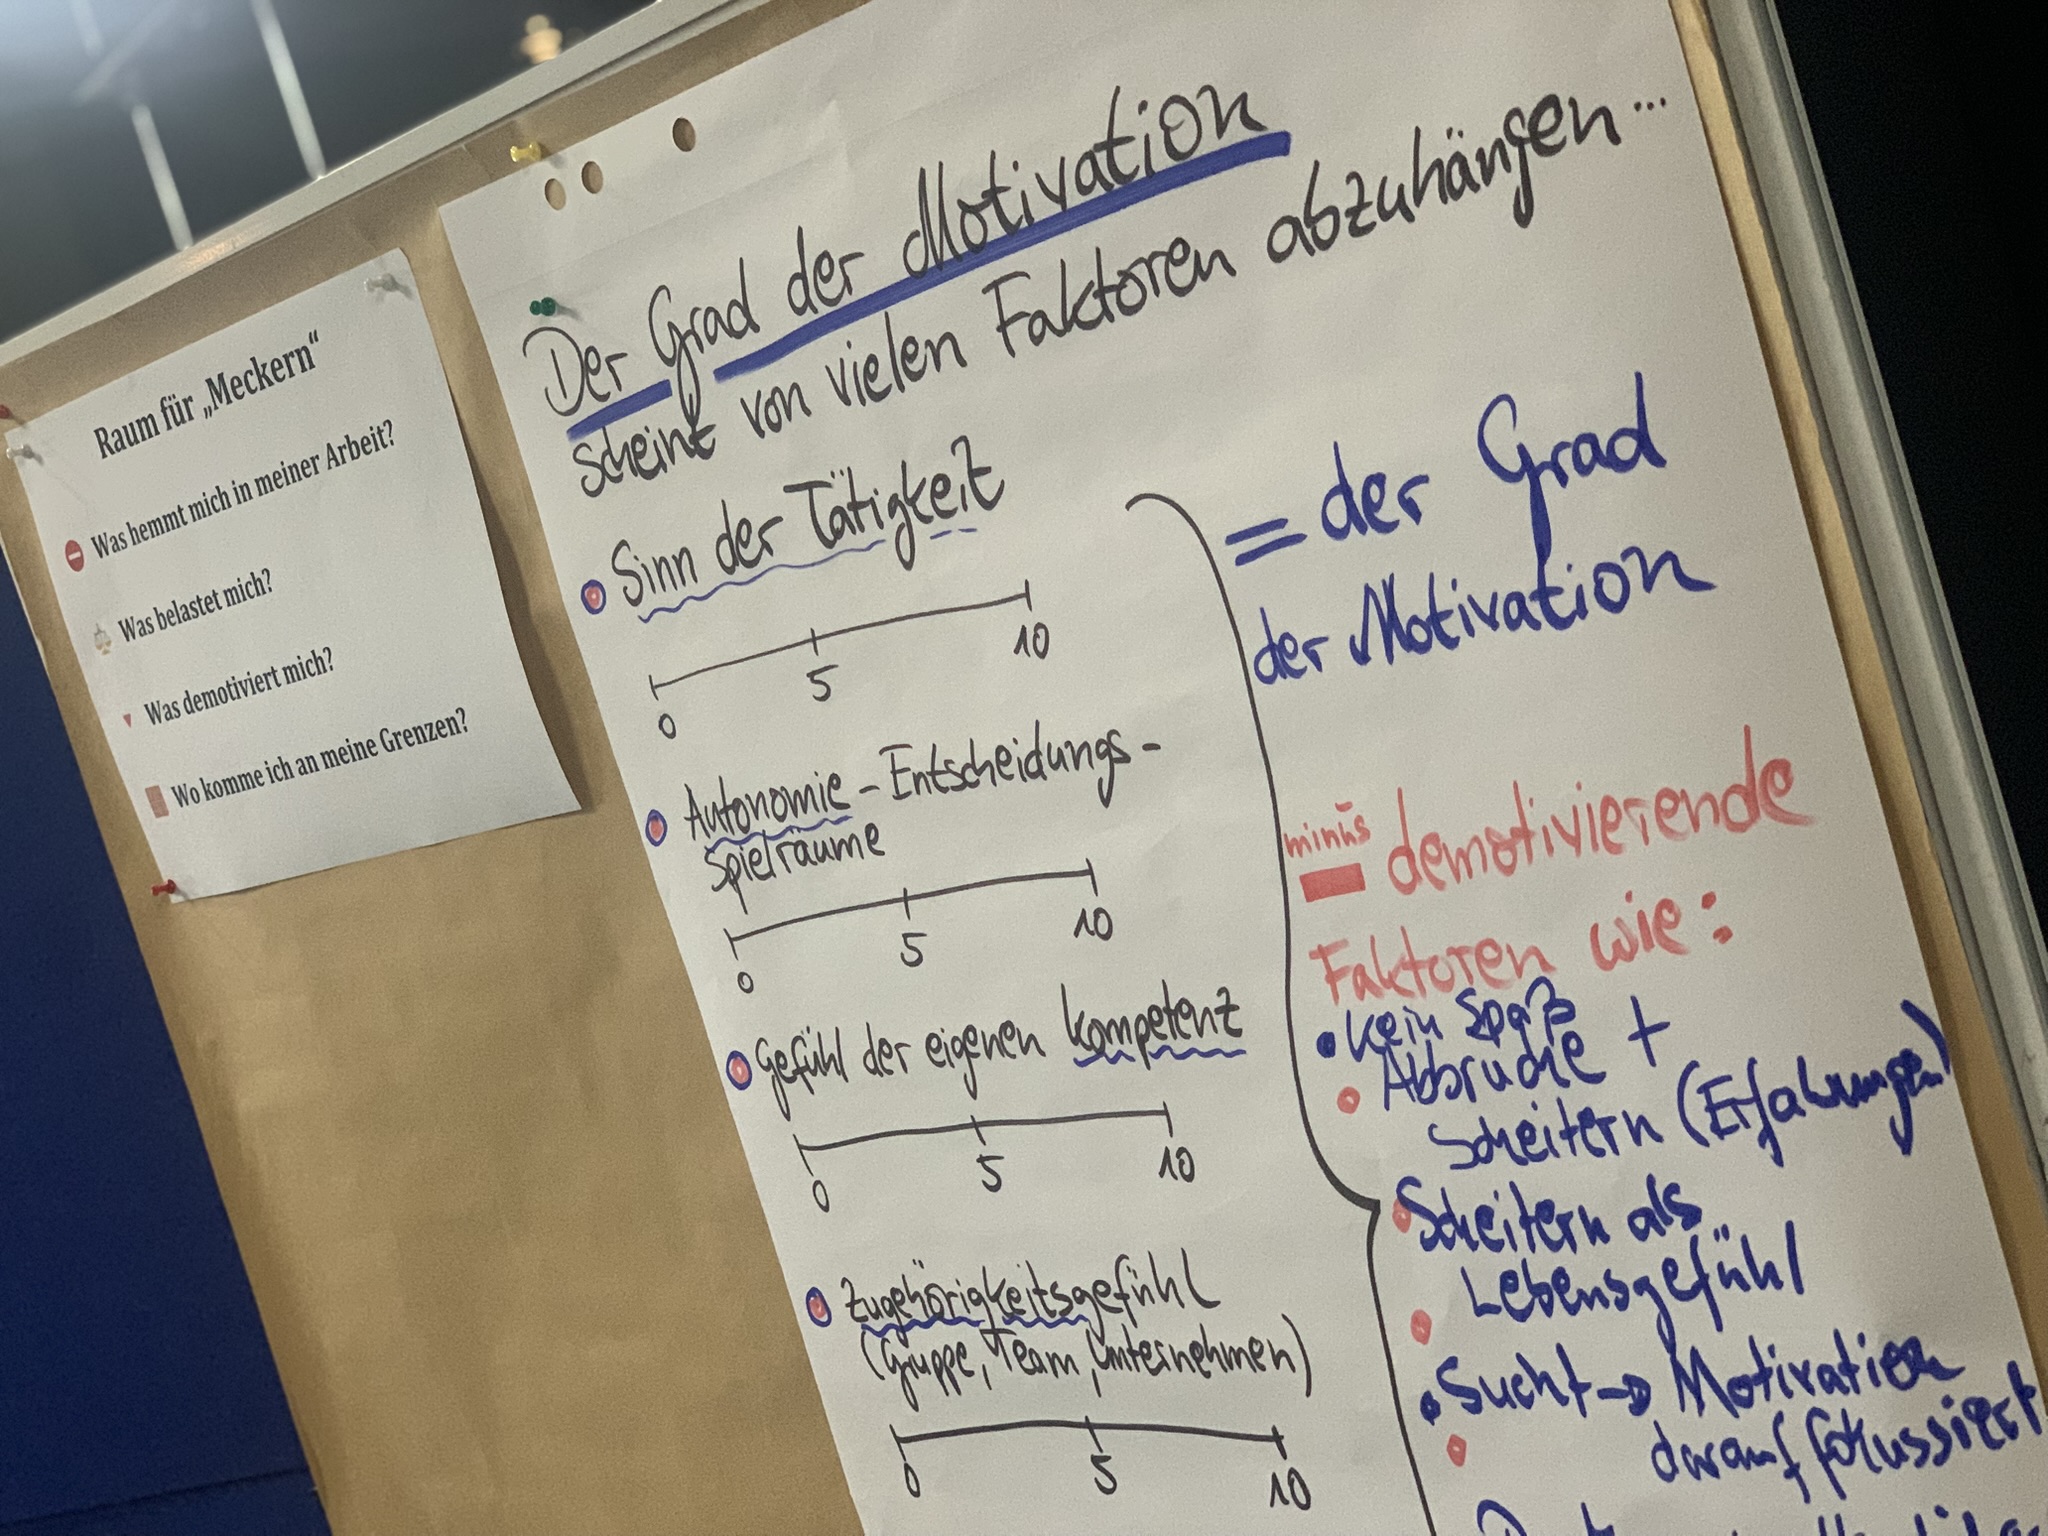 Raum für „Meckern“
Was hemmt mich in meiner Arbeit?
Was belastet mich?
Was demotiviert mich?
Wo komme ich an meine Grenzen?
Der Grad der Motivation
scheint von vielen Faktoren abzuhängen...
Sinn der Tätigkeit
0 5 10
Autonomie - Entscheidungs-
spielräume
0 5 10
Gefühl der eigenen Kompetenz
0 5 10
Zugehörigkeitsgefühl
(Gruppe, Team, Unternehmen)
0 5 10
= der Grad
der Motivation
minus
- demotivierende
Faktoren wie:
• kein Spaß
Abbrüche +
Scheitern (Erfahrungen)
Scheitern als
Lebensgefühl
• Sucht → Motivation
darauf fokussiert